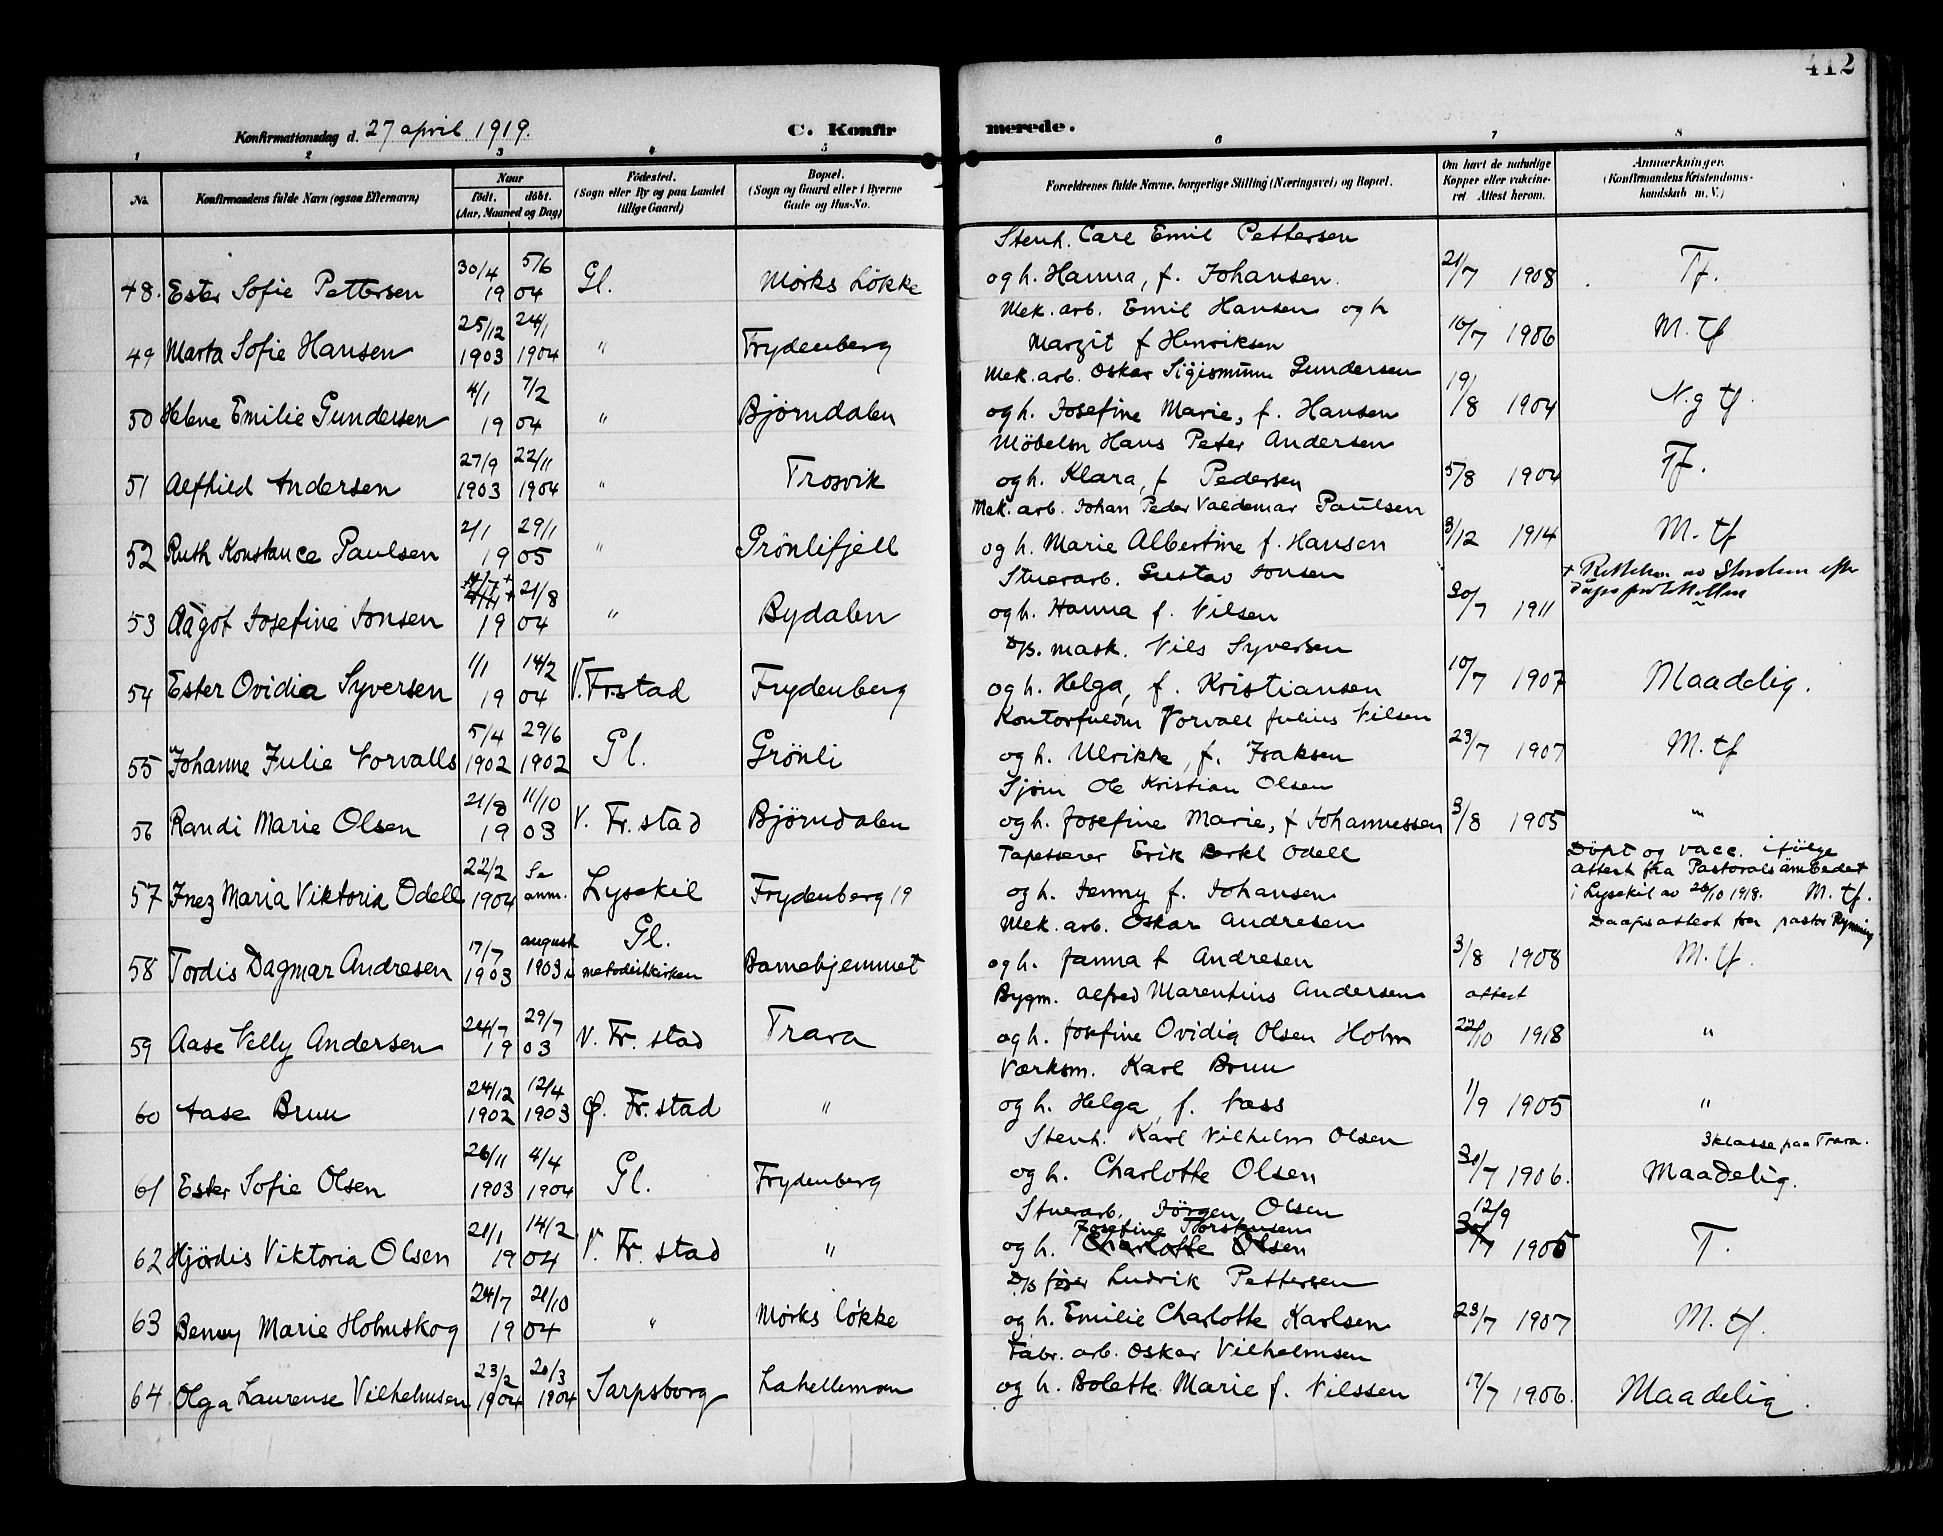 412
Konfirmationsdag d. 27 april 1919. C. Konfirmerede.
1 2 3 4 5 6 7 8
No. Konfirmandens fulde Navn (ogsaa Efternavn) Naar født. døbt. (Aar, Maaned og Dag) Fødested. (Sogn eller By og paa Landet tillige Gaard) Bopæl. (Sogn og Gaard eller i Byerne Gade og Hus-No. Forældrenes fulde Navne, borgerlige Stilling (Næringsvei) og Bopæl. Om havt de naturlige Kopper eller vaccineret Attest herom. Anmærkninger. (Konfirmandens Kristendomskundskab m. V.)
Stenh. Carl Emil Pettersen
48. Ester Sofie Pettersen 30/4 1904 5/6 Gl. Mørks Løkke og h. Hanna, f. Johansen. 21/7 1908 Tf.
Mek. arb. Emil Hansen og h
49 Marta Sofie Hansen 25/12 1903 24/1 1904 " Frydenberg Margit f Henriksen 10/7 1906 M. tf
Mek. arb. Oskar Sigismunn Gundersen
50 Helene Emilie Gundersen 4/1 1904 7/2 " Bjørndalen og h. Josefine Marie, f. Hansen 19/8 1904 N.g tf.
Møbelsn Hans Peter Andersen
51 Alfhild Andersen 27/9 1903 22/11 1904 " Trosvik og h. Klara, f Pedersen 5/8 1904 Tf.
Mek. arb. Johan Peder Valdemar Paulsen
52 Ruth Konstance Paulsen 2/1 1905 29/1 " Grönlifjell og h. Marie Albertine f. Hansen 3/12 1914 M. tf
Stuerarb. Gustav Jonsen + Rettelsen av
53 Aagot Josefine Jonsen 1904 21/8 " Bydalen og h. Hanna f. Nilsen 30/7 1911
D/S. mask. Nils Syversen
54 Ester Ovidia Syversen 1/1 1904 14/2 V. Fr.stad Frydenberg og h. Helga, f. Kristiansen 10/7 1907 Maadelig.
Kontorfuldm Norvall Julius Nilsen
55 Johanne Julie Norvalls 5/4 1902 29/6 1902 Gl. Grönli og h. Ulrikke, f. Isaksen 23/7 1907 M. tf
Sjöm Ole Kristian Olsen
56 Randi Marie Olsen 21/8 1903 11/10 V. Fr. stad Bjørndalen og h. Josefine Marie, f Johannessen 3/8 1905 "
Tapetserer Erik Odell Döpt og vacc. ifölge
57 Inez Maria Viktoria Odell 22/2 1904 Se anm. Lysekil Frydenberg 19 og h. Jenny f. Johansen attest fra Pastoralsämbedet
i Lysekil av 28/10 1918. M. tf.
Mek. arb. Oskar Andresen Daapsattest fra pastor Rynning
58 Tordis Dagmar Andresen 17/7 1903 august 1903 i Gl. metodistkirken Barnehjemmet og h. Janna f Andresen 3/8 1908 M. tf.
Bygm. Alfred Marentius Andersen attest
59 Aase Nelly Andersen 24/7 1903 29/7 V. Fr. stad Trara og h. Josefine Ovidia Olsen Holm 22/10 1918 "
Værksm. Karl Bruu
60 Aase Bruu 24/12 1902 12/4 1903 Ø. Fr. stad " og h. Helga, f. Næss 1/9 1905 "
Stenh. Karl Vilhelm Olsen 3 klasse paa Trara.
61 Ester Sofie Olsen 26/11 1903 4/4 1904 Gl. Frydenberg og h. Charlotte Olsen 30/7 1906. Maadelig.
Stuerarb. Jörgen Olsen 12/9
Josefine Torstensen
62 Hjördis Viktoria Olsen 21/1 1904 14/2 V. Fr. stad " og h. Charlotte Olsen 30/7 1905 T.
D/S fører Ludvik Pettersen
63 Benny Marie Holmskog 24/7 1904 21/10 " Mørks løkke og h. Emilie Charlotte Karlsen 23/7 1907 M. tf.
Fabr. arb. Oskar Vilhelmsen
64 Olga Laurense Vilhelmsen 23/2 1904 20/3 1904 Sarpsborg Lahellemoen og h. Bolette Marie f. Nilssen 17/7 1906. Maadelig.